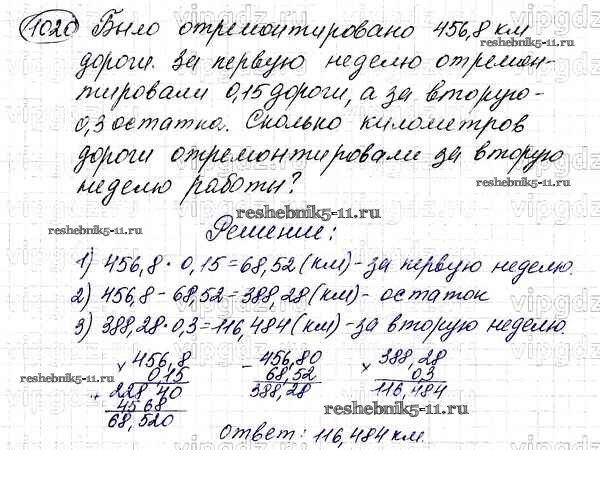 1020 Было отремонтировано 456,8 км
дороги. За первую неделю отремон-
тировали 0,15 дороги, а за вторую -
0,3 остатка. Сколько километров
дороги отремонтировали за вторую
неделю работы?
Решение:
1) 456,8 · 0,15 = 68,52 (км) - за первую неделю.
2) 456,8 - 68,52 = 388,28 (км) - остаток
3) 388,28 · 0,3 = 116,484 (км) - за вторую неделю.
× 456,8 - 456,80 × 388,28
0,15 68,52 0,3
+ 228 40 388,28 116,484
4568
68,520
Ответ: 116,484 км.
reshebnik5-11.ru
reshebnik5-11.ru
reshebnik5-11.ru
reshebnik5-11.ru
reshebnik5-11.ru
vipgdz